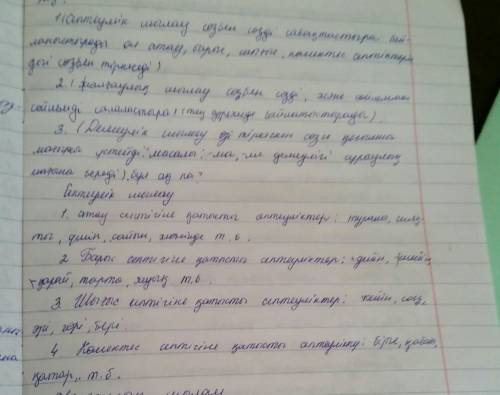 1. (Септеулік шылау сөзбен сөзді сабақтастыра бай-
ланыстырады ол атау, барыс, шығыс, көмектес септіктері
дегі сөзбен тіркеседі)
2. (жалғаулық шылау сөзбен сөзді,
сөйлемді салаластыра) (тең дәрежеде байланыстырады).
3. (Демеулік шылау өзі тіркескен сөзге қосымша
мағына үстейді: мысалы: -ма, -ме демеулігі сұраулық
мағына береді), бұл ақ па?
Септеулік шылау
1. атау септігіне қатысты септеуліктер: туралы, сияқ
ты, үшін, сайын, жөнінде т.б.
2 Барыс септігіне қатысты септеуліктер: дейін, шейін,
қарай, тарта, жуық т.б.
3 Шығыс септігіне қатысты септеуліктер: кейін, соң,
гөрі, бері.
4 Көмектес септігіне қатысты септеуліктер: бірге, қабат,
қатар, т.б.